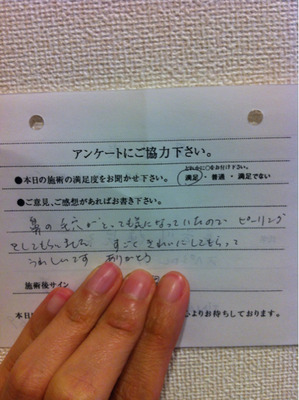 アンケートにご協力下さい。
どれかに○をお付け下さい。
●本日の施術の満足度をお聞かせ下さい。 満足・普通・満足でない
●ご意見、ご感想があればお書き下さい。
鼻の毛穴がとっても気になっていたので ピーリング
をしてもらいました すごくきれいにしてもらって
うれしいです ありがとう
施術後サイン
本日 心よりお待ちしております。